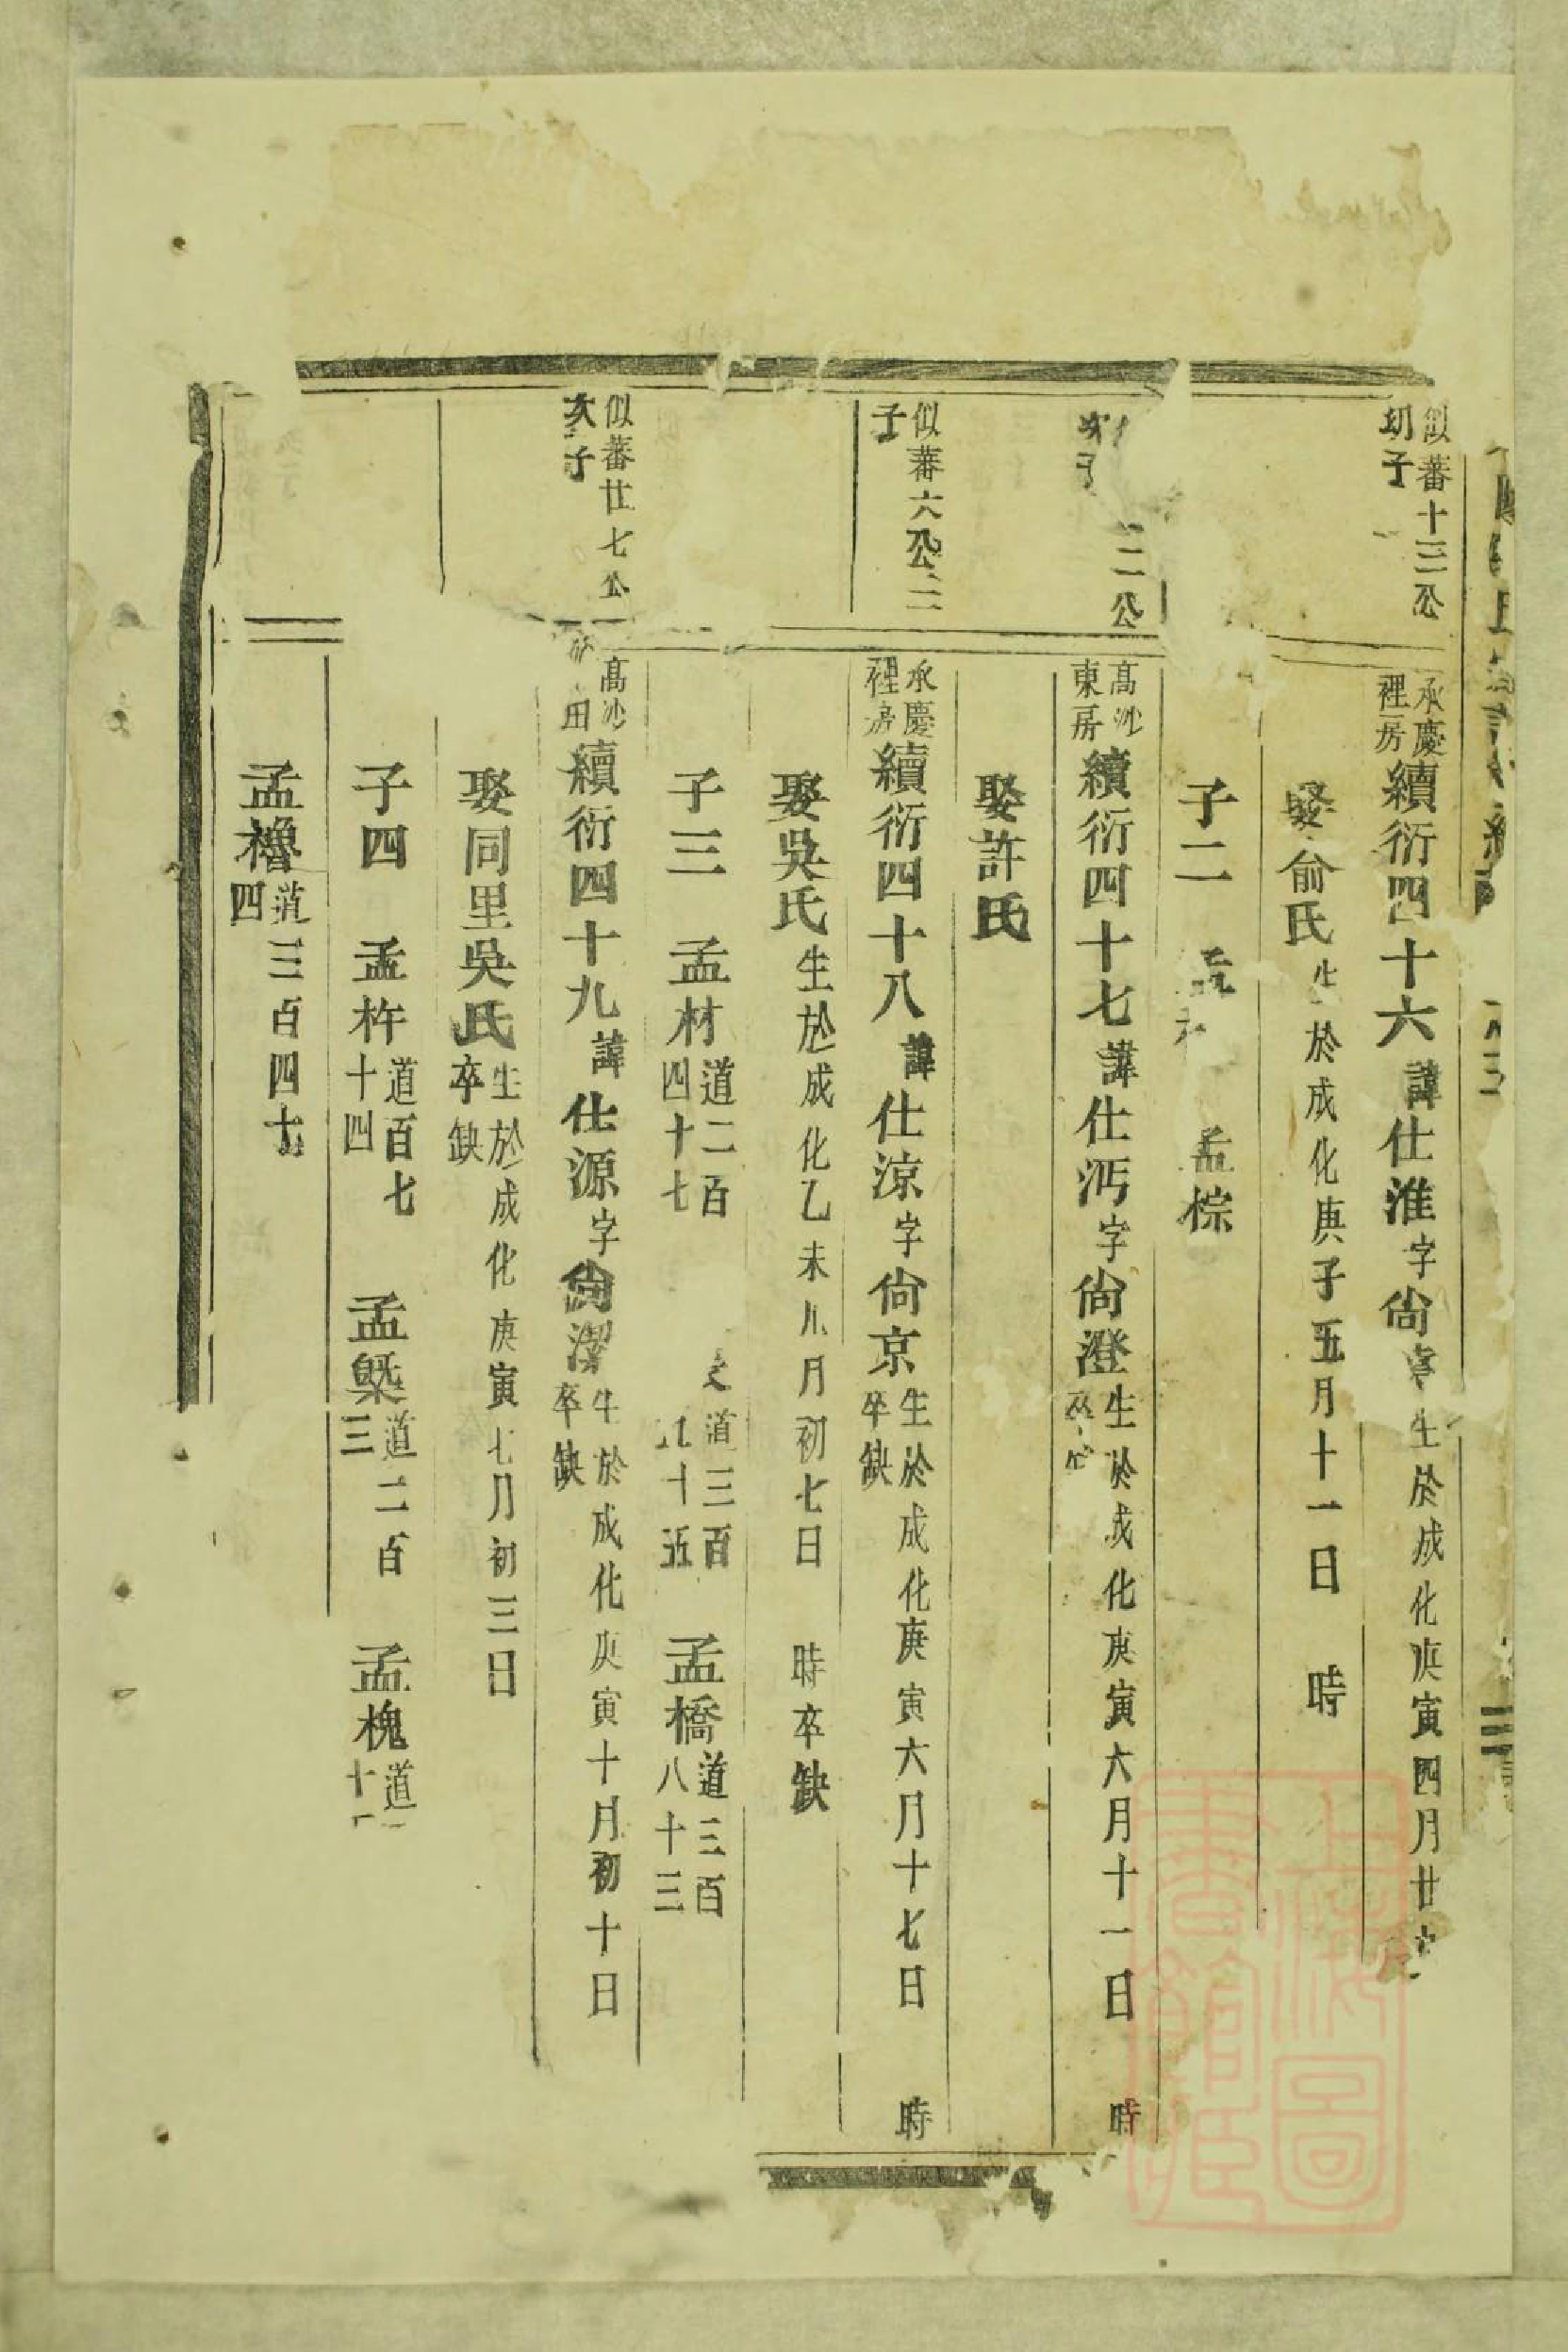 似蕃十三公
幼子
承慶
裡房
續衍四十六諱仕淮字尙
生於成化庚寅四月廿
娶俞氏生於成化庚子五月十一日 時
子二 孟 孟棕
二公
高沙
東房
續衍四十七諱仕沔字尙澄
生於成化庚寅六月十一日 時
娶許氏
似蕃六公二
子
承慶
裡房
續衍四十八諱仕涼字尙京
生於成化庚寅六月十七日 時
卒缺
娶吳氏生於成化乙未八月初七日 時卒缺
子三 孟材
道二百
四十七
道三百
十五
孟橋
道三百
八十三
似蕃廿七公
次子
高沙
田
續衍四十九諱仕源字尙潔
生於成化庚寅十月初十日
卒缺
娶同里吳氏
生於成化庚寅七月初三日
卒缺
子四 孟杵
道百七
十四
孟槩
道二百
三
孟槐
道
十
孟櫓
道三百四十
四
上海圖
書館藏